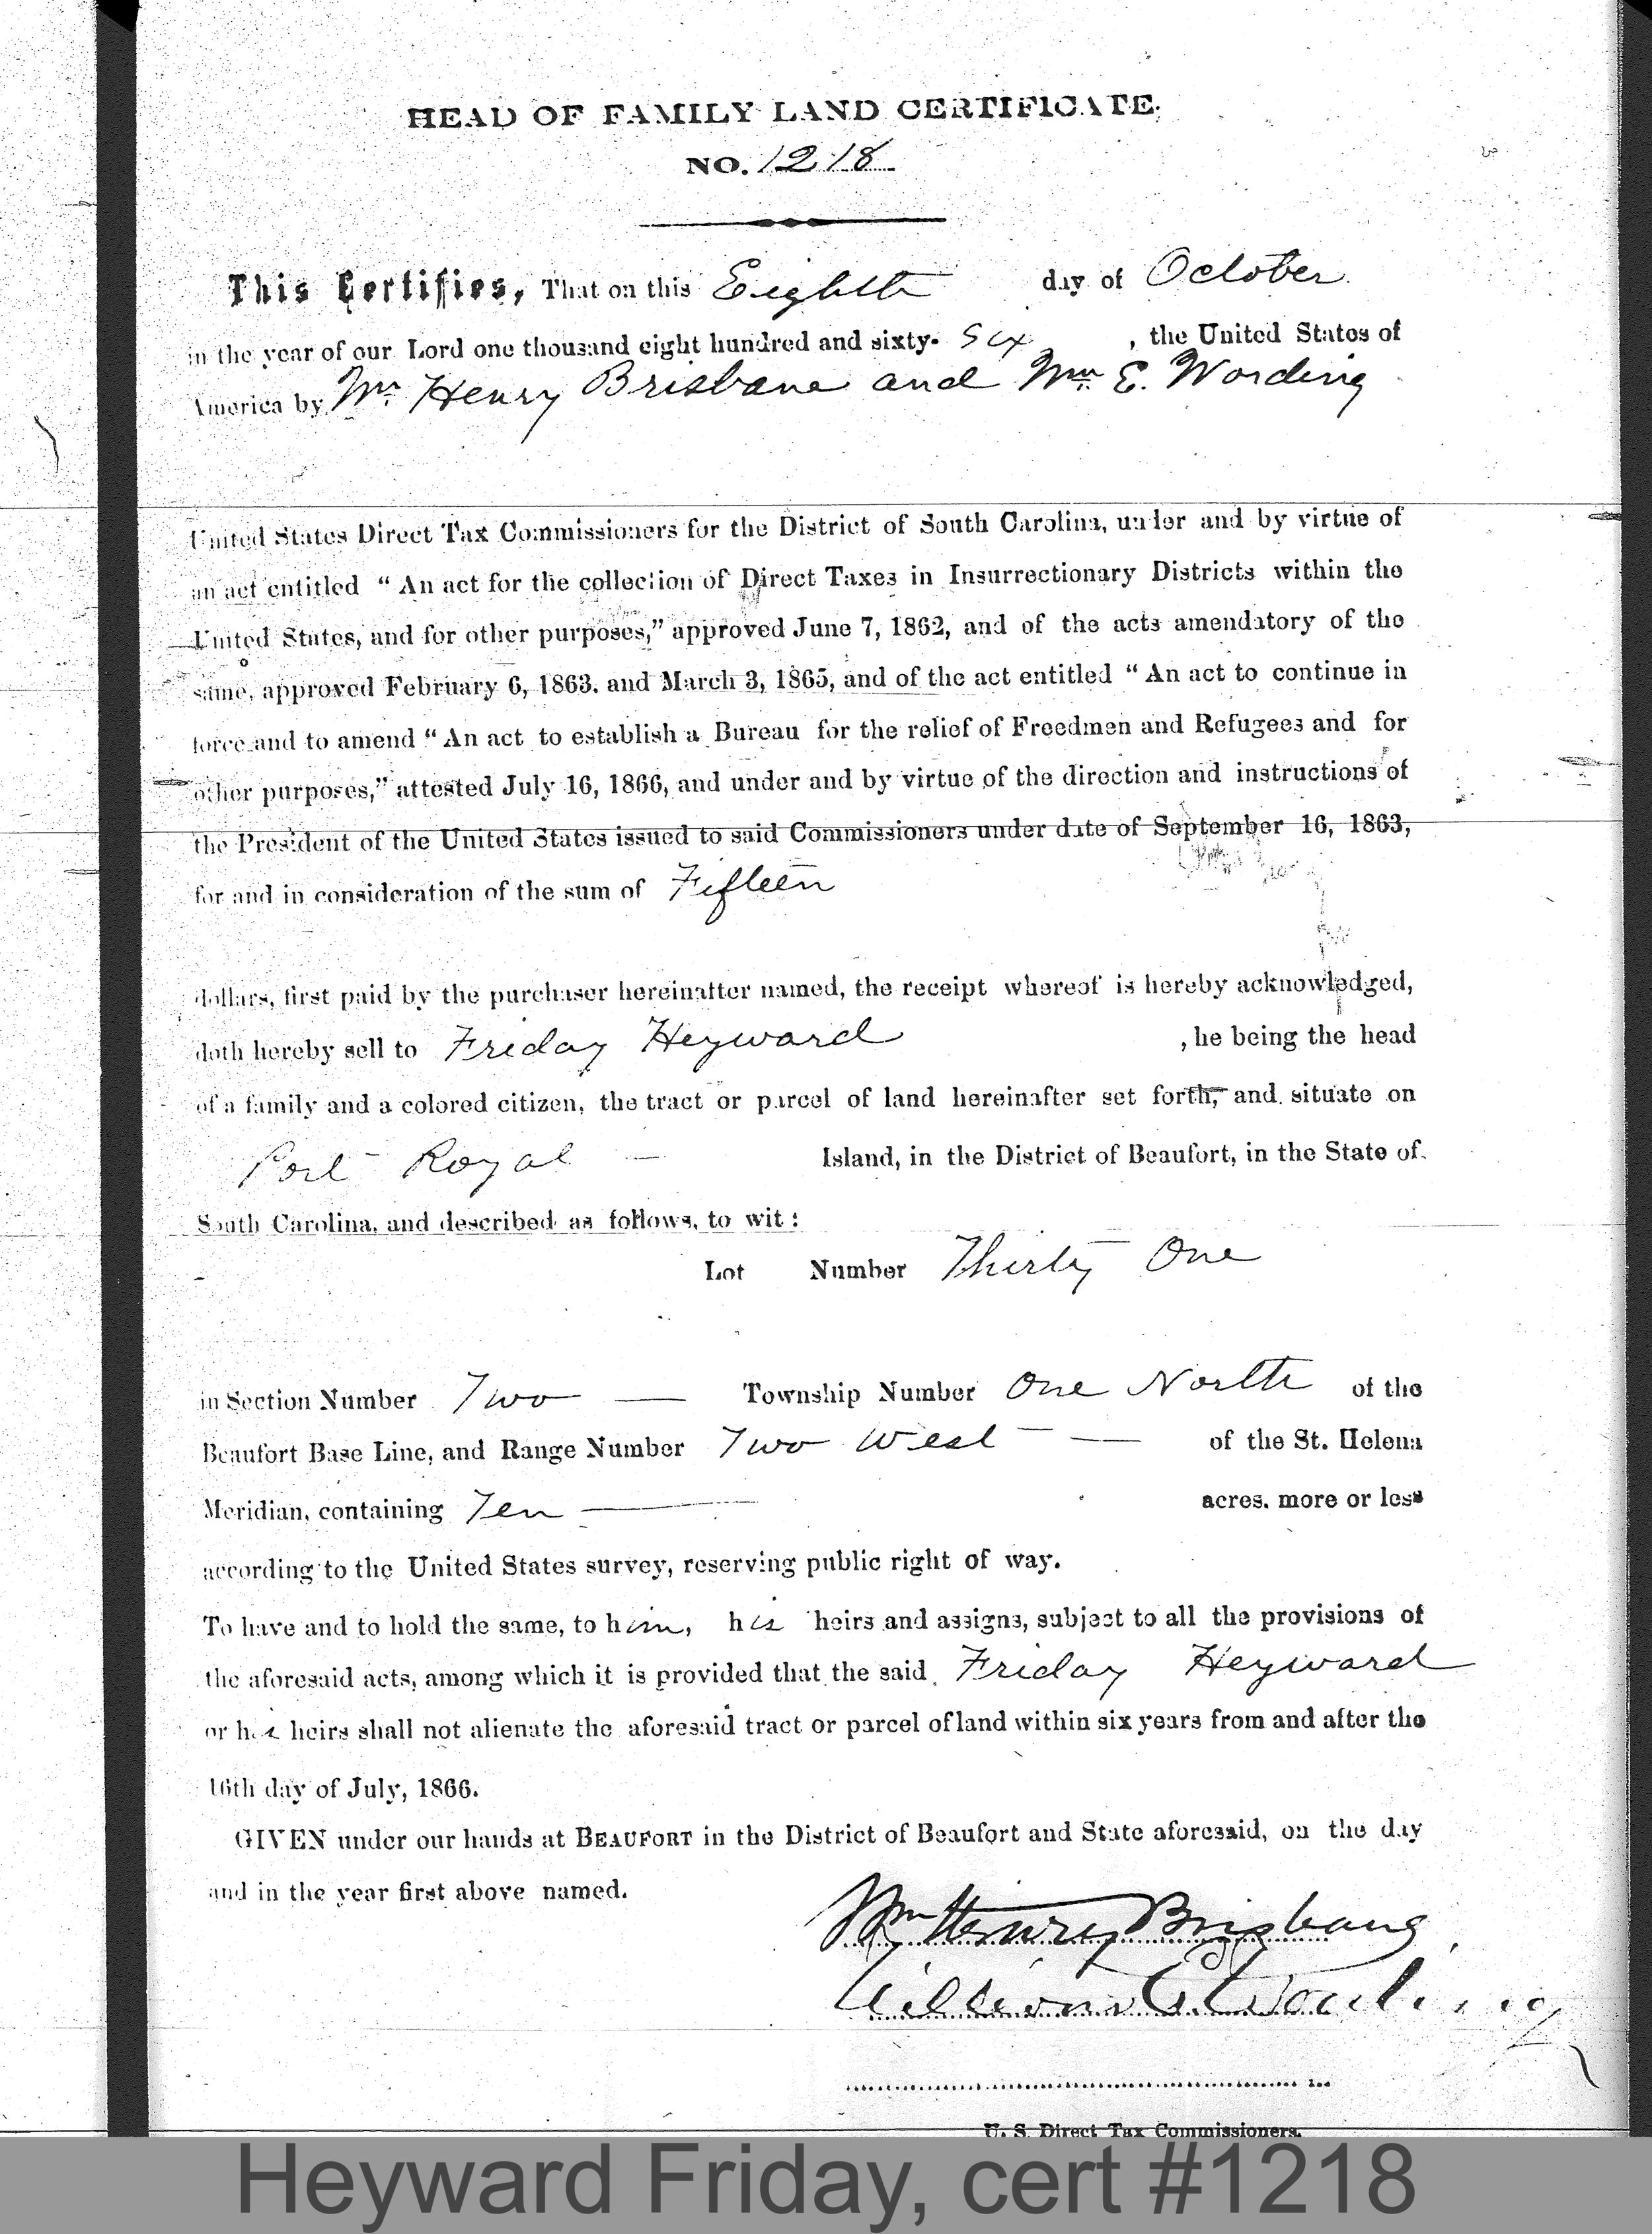 HEAD OF FAMILY LAND CERTIFICATE.
NO. 1218
This Certifies, That on this Eighth day of October
in the year of our Lord one thousand eight hundred and sixty-six, the United States of
America by Wm Henry Brisbane and Wm E. Wording
United States Direct Tax Commissioners for the District of South Carolina, under and by virtue of
an act entitled “ An act for the collection of Direct Taxes in Insurrectionary Districts within the
United States, and for other purposes,” approved June 7, 1862, and of the acts amendatory of the
same, approved February 6, 1863. and March 3, 1865, and of the act entitled “ An act to continue in
force and to amend “ An act to establish a Bureau for the relief of Freedmen and Refugees and for
other purposes,” attested July 16, 1866, and under and by virtue of the direction and instructions of
the President of the United States issued to said Commissioners under date of September 16, 1863,
for and in consideration of the sum of Fifteen
dollars, first paid by the purchaser hereinafter named, the receipt whereof is hereby acknowledged,
doth hereby sell to Friday Heyward , he being the head
of a family and a colored citizen, the tract or parcel of land hereinafter set forth, and situate on
Port Royal — Island, in the District of Beaufort, in the State of
South Carolina, and described as follows, to wit :
Lot Number Thirty One
in Section Number Two — Township Number One North of the
Beaufort Base Line, and Range Number Two West — — of the St. Helena
Meridian, containing Ten — acres. more or less
according to the United States survey, reserving public right of way.
To have and to hold the same, to him, his heirs and assigns, subject to all the provisions of
the aforesaid acts, among which it is provided that the said Friday Heyward
or his heirs shall not alienate the aforesaid tract or parcel of land within six years from and after the
16th day of July, 1866.
GIVEN under our hands at BEAUFORT in the District of Beaufort and State aforesaid, on the day
and in the year first above named.
Wm Henry Brisbane
William E. Wording
U. S. Direct Tax Commissioners.
Heyward Friday, cert #1218